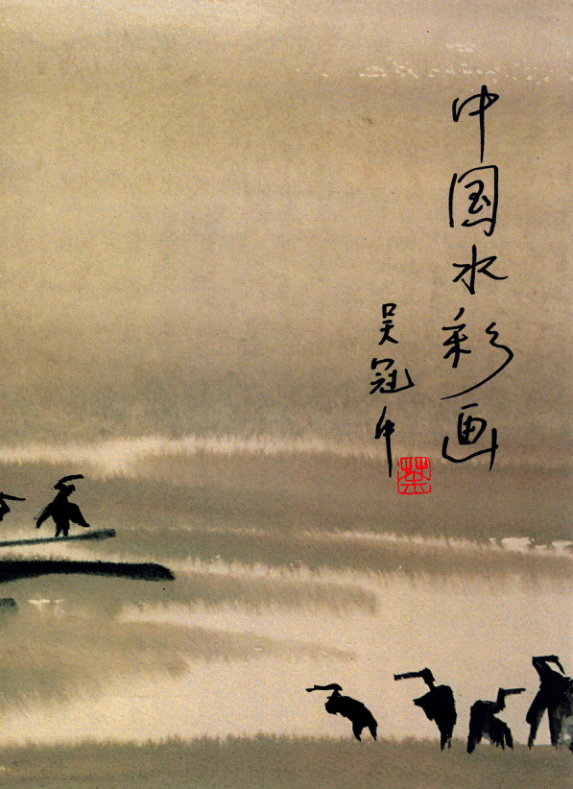 中国水彩画
吴冠中
荼